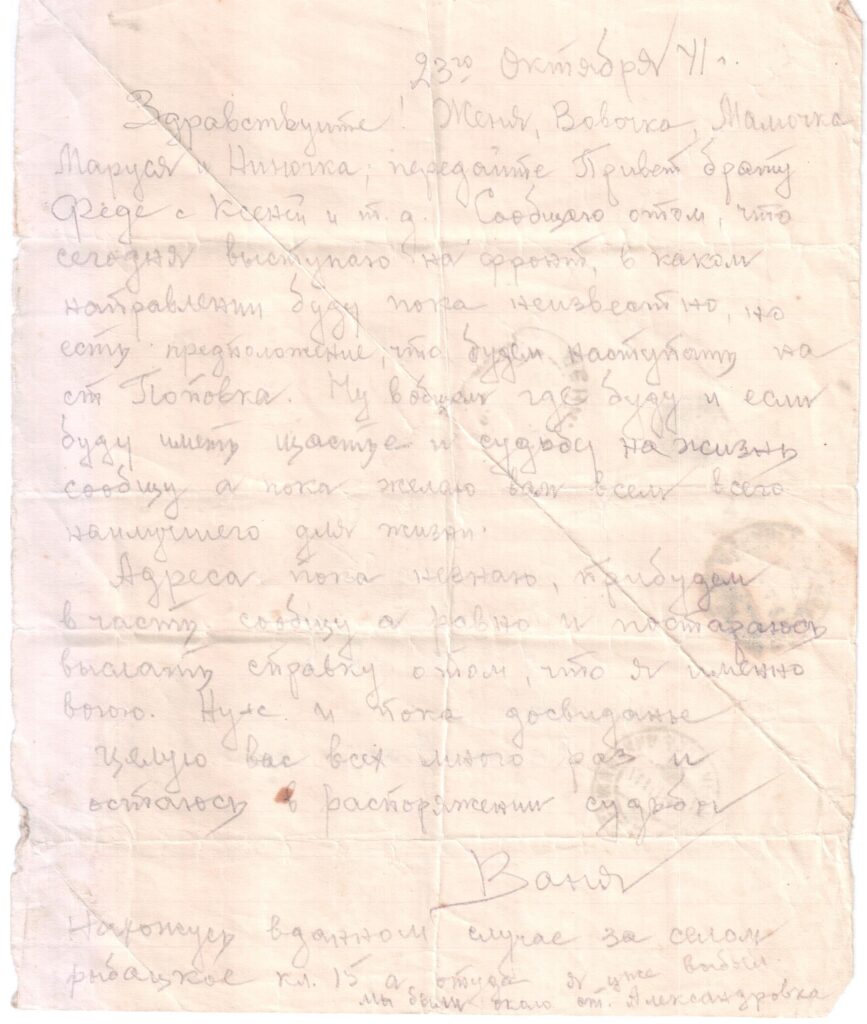 23го Октября 41 г.
Здравствуйте! Женя, Вовочка, Мамочка
Маруся и Ниночка, передайте Привет брату
Феде с Ксеней и т.д. Сообщаю отом, что
сегодня выступаю на фронт, в каком
направлении буду пока неизвестно, но
есть предположение, что будем наступать на
ст Поповка. Ну вобщем где буду и если
буду иметь щастье и судьбу на жизнь
сообщу а пока желаю вам всем всего
наилучшего для жизни.
Адреса пока незнаю, прибудем
в часть сообщу а равно и постараюсь
выслать справку отом, что я именно
воюю. Нуж и пока досвиданье
целую вас всех много раз и
остаюсь в распоряжении судьбы
Ваня
Нахожусь вданном случае за селом
рыбацкое кл. 15 а отуда я уже выбыл.
мы были около ст. Александровка